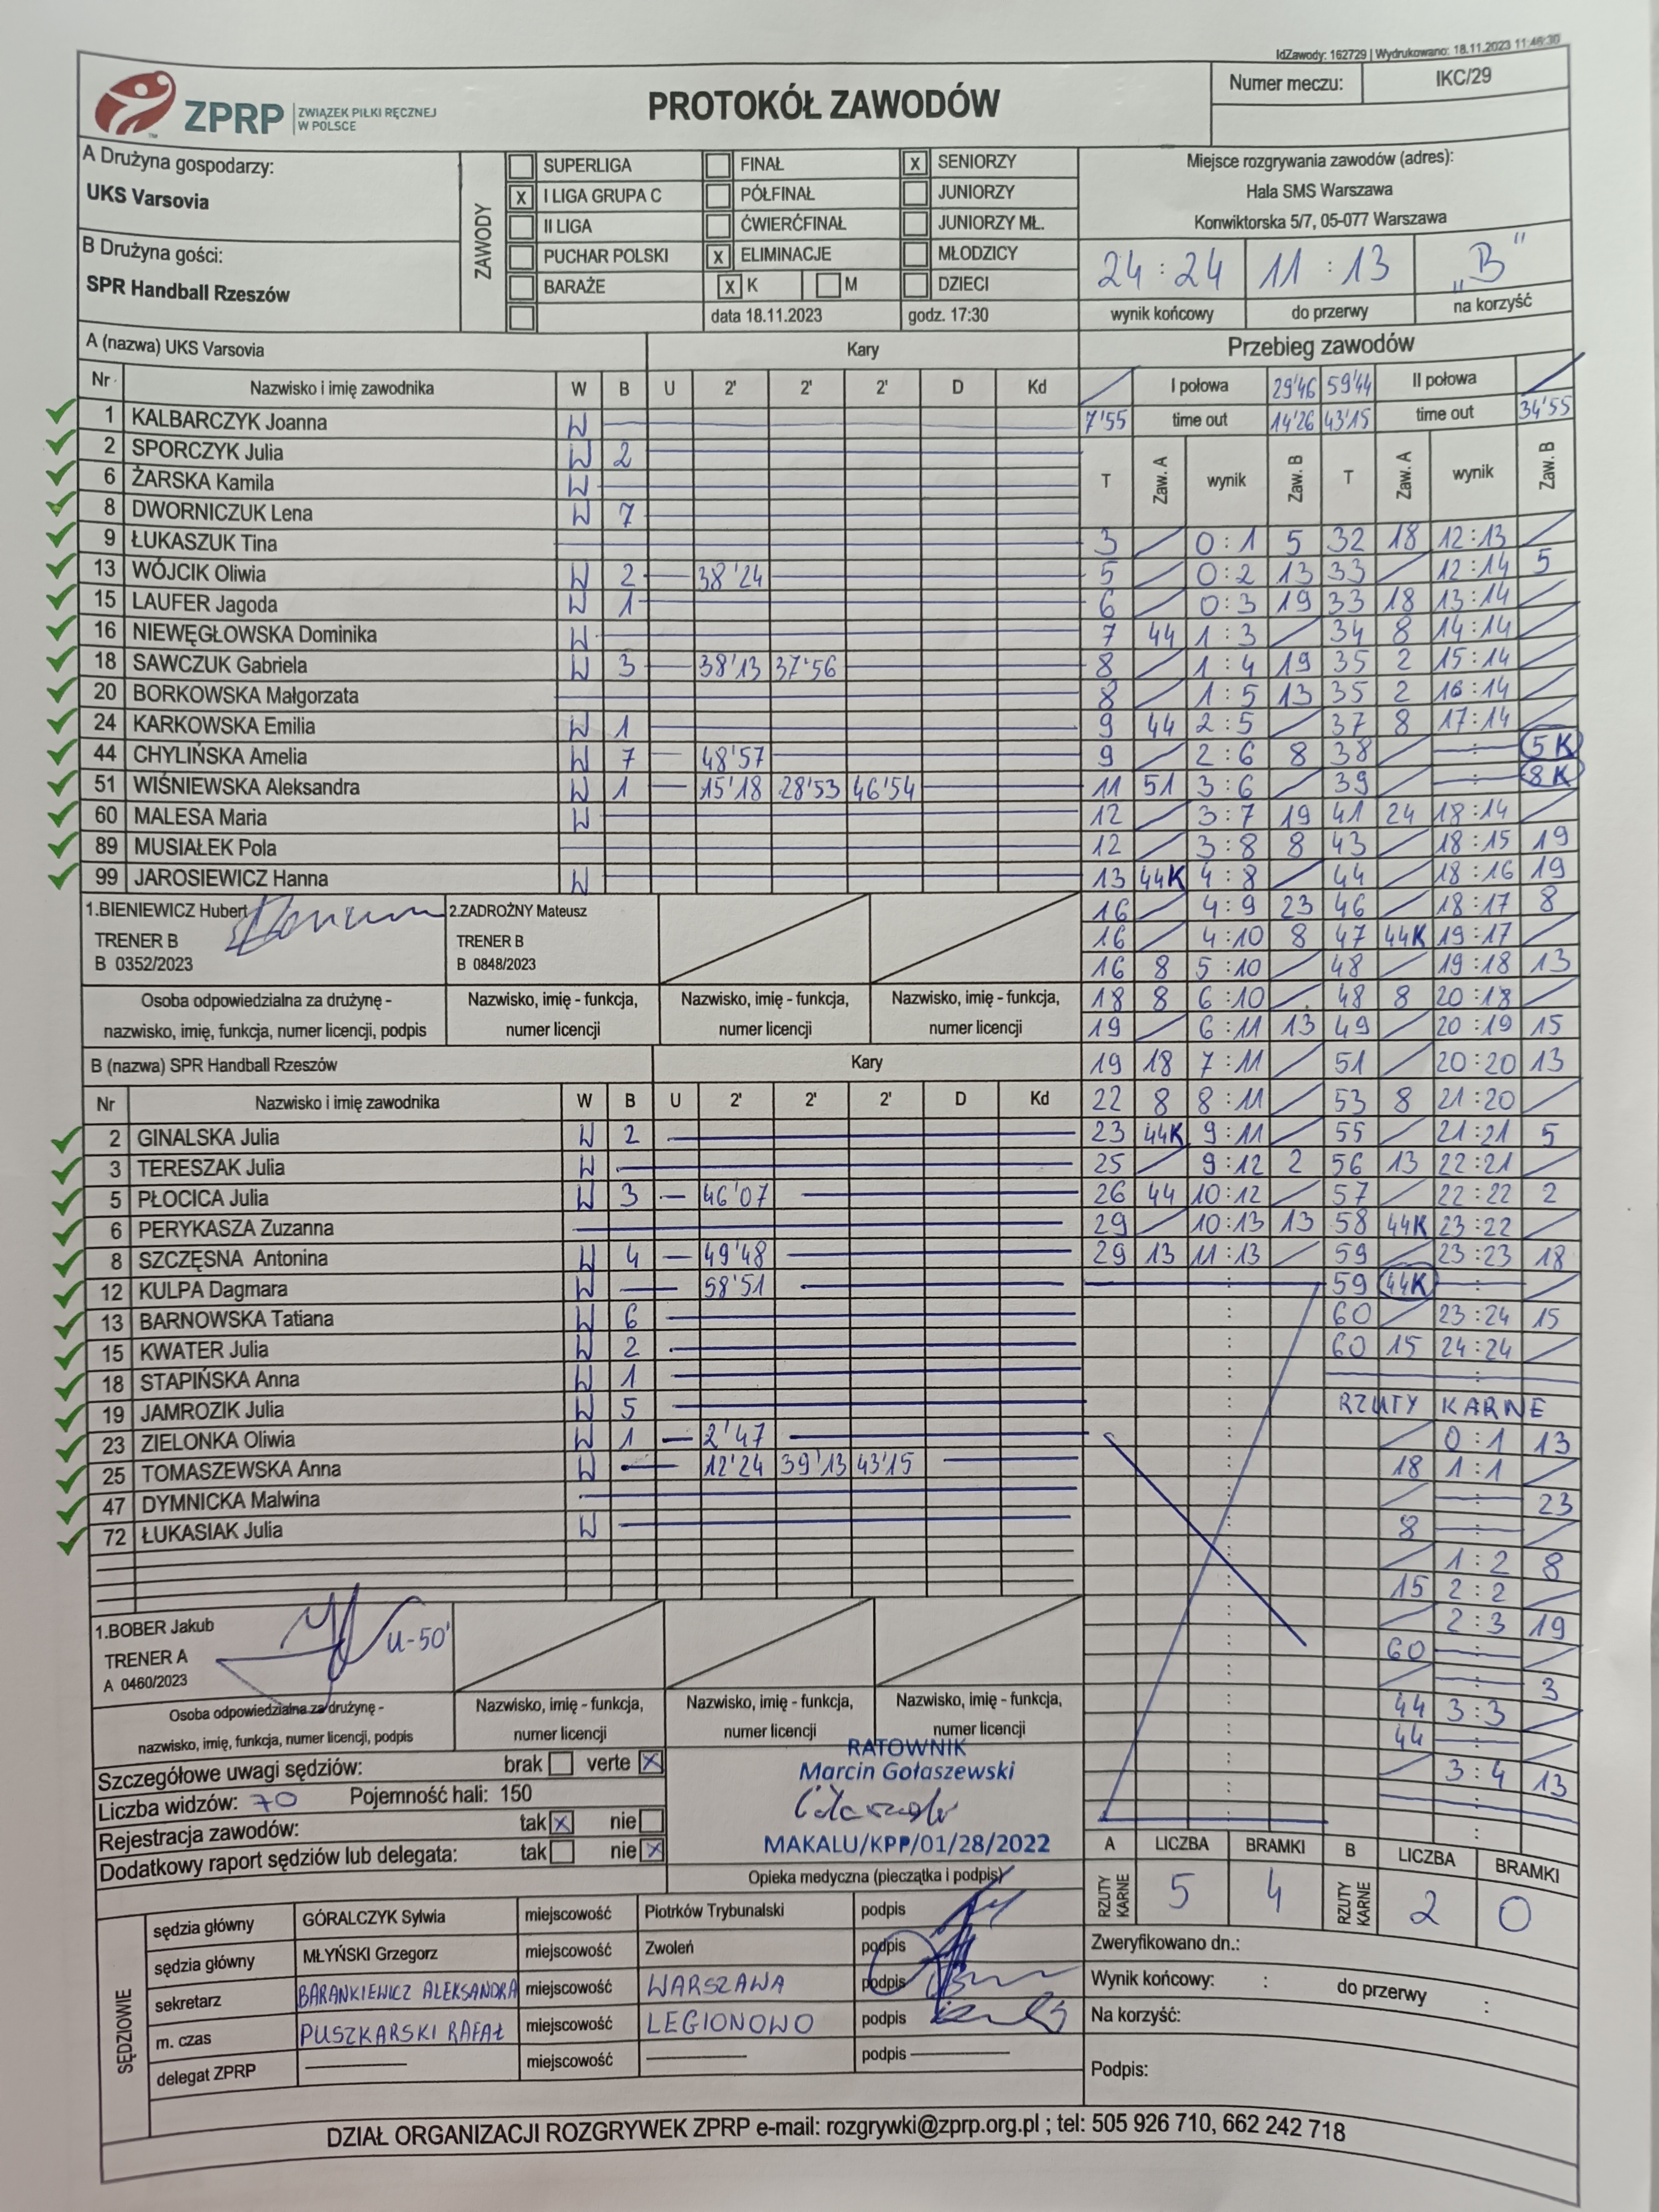 IdZawody: 162729 | Wydrukowano: 18.11.2023 11:46:30
ZPRP ZWIĄZEK PIŁKI RĘCZNEJ W POLSCE
PROTOKÓŁ ZAWODÓW
Numer meczu: IKC/29
A Drużyna gospodarzy:
UKS Varsovia
B Drużyna gości:
SPR Handball Rzeszów
ZAWODY
SUPERLIGA FINAŁ X SENIORZY
X I LIGA GRUPA C PÓŁFINAŁ JUNIORZY
II LIGA ĆWIERĆFINAŁ JUNIORZY MŁ.
PUCHAR POLSKI X ELIMINACJE MŁODZICY
BARAŻE X K M DZIECI
data 18.11.2023 godz. 17:30
Miejsce rozgrywania zawodów (adres):
Hala SMS Warszawa
Konwiktorska 5/7, 05-077 Warszawa
24:24 11:13 „B"
wynik końcowy do przerwy na korzyść
A (nazwa) UKS Varsovia Kary
Nr Nazwisko i imię zawodnika W B U 2' 2' 2' D Kd
1 KALBARCZYK Joanna W
2 SPORCZYK Julia W 2
6 ŻARSKA Kamila W
8 DWORNICZUK Lena W 7
9 ŁUKASZUK Tina
13 WÓJCIK Oliwia W 2 38'24
15 LAUFER Jagoda W 1
16 NIEWĘGŁOWSKA Dominika W
18 SAWCZUK Gabriela W 3 38'13 37'56
20 BORKOWSKA Małgorzata
24 KARKOWSKA Emilia W 1
44 CHYLIŃSKA Amelia W 7 48'57
51 WIŚNIEWSKA Aleksandra W 1 15'18 28'53 46'54
60 MALESA Maria W
89 MUSIAŁEK Pola
99 JAROSIEWICZ Hanna W
1.BIENIEWICZ Hubert 2.ZADROŻNY Mateusz
TRENER B TRENER B
B 0352/2023 B 0848/2023
Osoba odpowiedzialna za drużynę - Nazwisko, imię - funkcja, Nazwisko, imię - funkcja, Nazwisko, imię - funkcja,
nazwisko, imię, funkcja, numer licencji, podpis numer licencji numer licencji numer licencji
B (nazwa) SPR Handball Rzeszów Kary
Nr Nazwisko i imię zawodnika W B U 2' 2' 2' D Kd
2 GINALSKA Julia W 2
3 TERESZAK Julia W
5 PŁOCICA Julia W 3 46'07
6 PERYKASZA Zuzanna
8 SZCZĘSNA Antonina W 4 49'48
12 KULPA Dagmara W 58'51
13 BARNOWSKA Tatiana W 6
15 KWATER Julia W 2
18 STAPIŃSKA Anna W 1
19 JAMROZIK Julia W 5
23 ZIELONKA Oliwia W 1 2'47
25 TOMASZEWSKA Anna W 12'24 39'13 43'15
47 DYMNICKA Malwina
72 ŁUKASIAK Julia W
1.BOBER Jakub
TRENER A
A 0460/2023
U-50'
Osoba odpowiedzialna za drużynę - Nazwisko, imię - funkcja, Nazwisko, imię - funkcja, Nazwisko, imię - funkcja,
nazwisko, imię, funkcja, numer licencji, podpis numer licencji numer licencji numer licencji
Przebieg zawodów
I połowa 29'46 59'44 II połowa
7'55 time out 14'26 43'15 time out 34'55
T Zaw. A wynik Zaw. B T Zaw. A wynik Zaw. B
3 0:1 5 32 18 12:13
5 0:2 13 33 12:14 5
6 0:3 19 33 18 13:14
7 44 1:3 34 8 14:14
8 1:4 19 35 2 15:14
8 1:5 13 35 2 16:14
9 44 2:5 37 8 17:14
9 2:6 8 38 5K
11 51 3:6 39 8K
12 3:7 19 41 24 18:14
12 3:8 8 43 18:15 19
13 44K 4:8 44 18:16 19
16 4:9 23 46 18:17 8
16 4:10 8 47 44K 19:17
16 8 5:10 48 19:18 13
18 8 6:10 48 8 20:18
19 6:11 13 49 20:19 15
19 18 7:11 51 20:20 13
22 8 8:11 53 8 21:20
23 44K 9:11 55 21:21 5
25 9:12 2 56 13 22:21
26 44 10:12 57 22:22 2
29 10:13 13 58 44K 23:22
29 13 11:13 59 23:23 18
59 44K
60 23:24 15
60 15 24:24
RZUTY KARNE
0:1 13
18 1:1
23
8
1:2 8
15 2:2
2:3 19
60
3
44 3:3
44
3:4 13
Szczegółowe uwagi sędziów: brak verte X
Liczba widzów: 70 Pojemność hali: 150
Rejestracja zawodów: tak X nie
Dodatkowy raport sędziów lub delegata: tak nie X
RATOWNIK
Marcin Gołaszewski
MAKALU/KPP/01/28/2022
Opieka medyczna (pieczątka i podpis)
A LICZBA BRAMKI B LICZBA BRAMKI
RZUTY KARNE 5 4 RZUTY KARNE 2 0
SĘDZIOWIE
sędzia główny GÓRALCZYK Sylwia miejscowość Piotrków Trybunalski podpis
sędzia główny MŁYŃSKI Grzegorz miejscowość Zwoleń podpis
sekretarz BARANKIEWICZ ALEKSANDRA miejscowość WARSZAWA podpis
m. czas PUSZKARSKI RAFAŁ miejscowość LEGIONOWO podpis
delegat ZPRP miejscowość podpis
Zweryfikowano dn.:
Wynik końcowy: : do przerwy :
Na korzyść:
Podpis:
DZIAŁ ORGANIZACJI ROZGRYWEK ZPRP e-mail: rozgrywki@zprp.org.pl ; tel: 505 926 710, 662 242 718